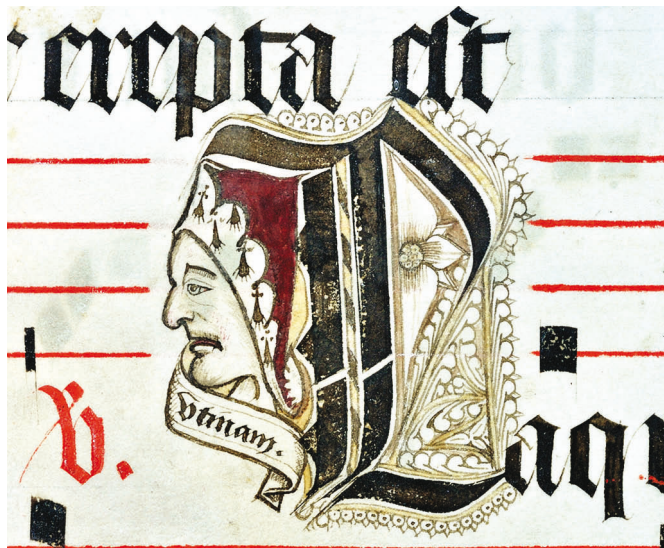 r erepta est
vtinam.
V. Laqu